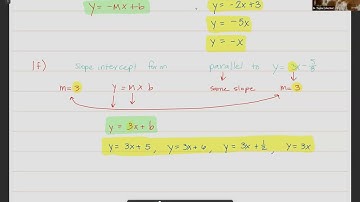 y = -mx + b
y = -2x + 3
y = -5x
y = -x
1f) slope intercept form parallel to y = 3x - 7/8
m = 3 y = m x b same slope m = 3
y = 3x + b
y = 3x + 5, y = 3x + 6, y = 3x + 1/2, y = 3x